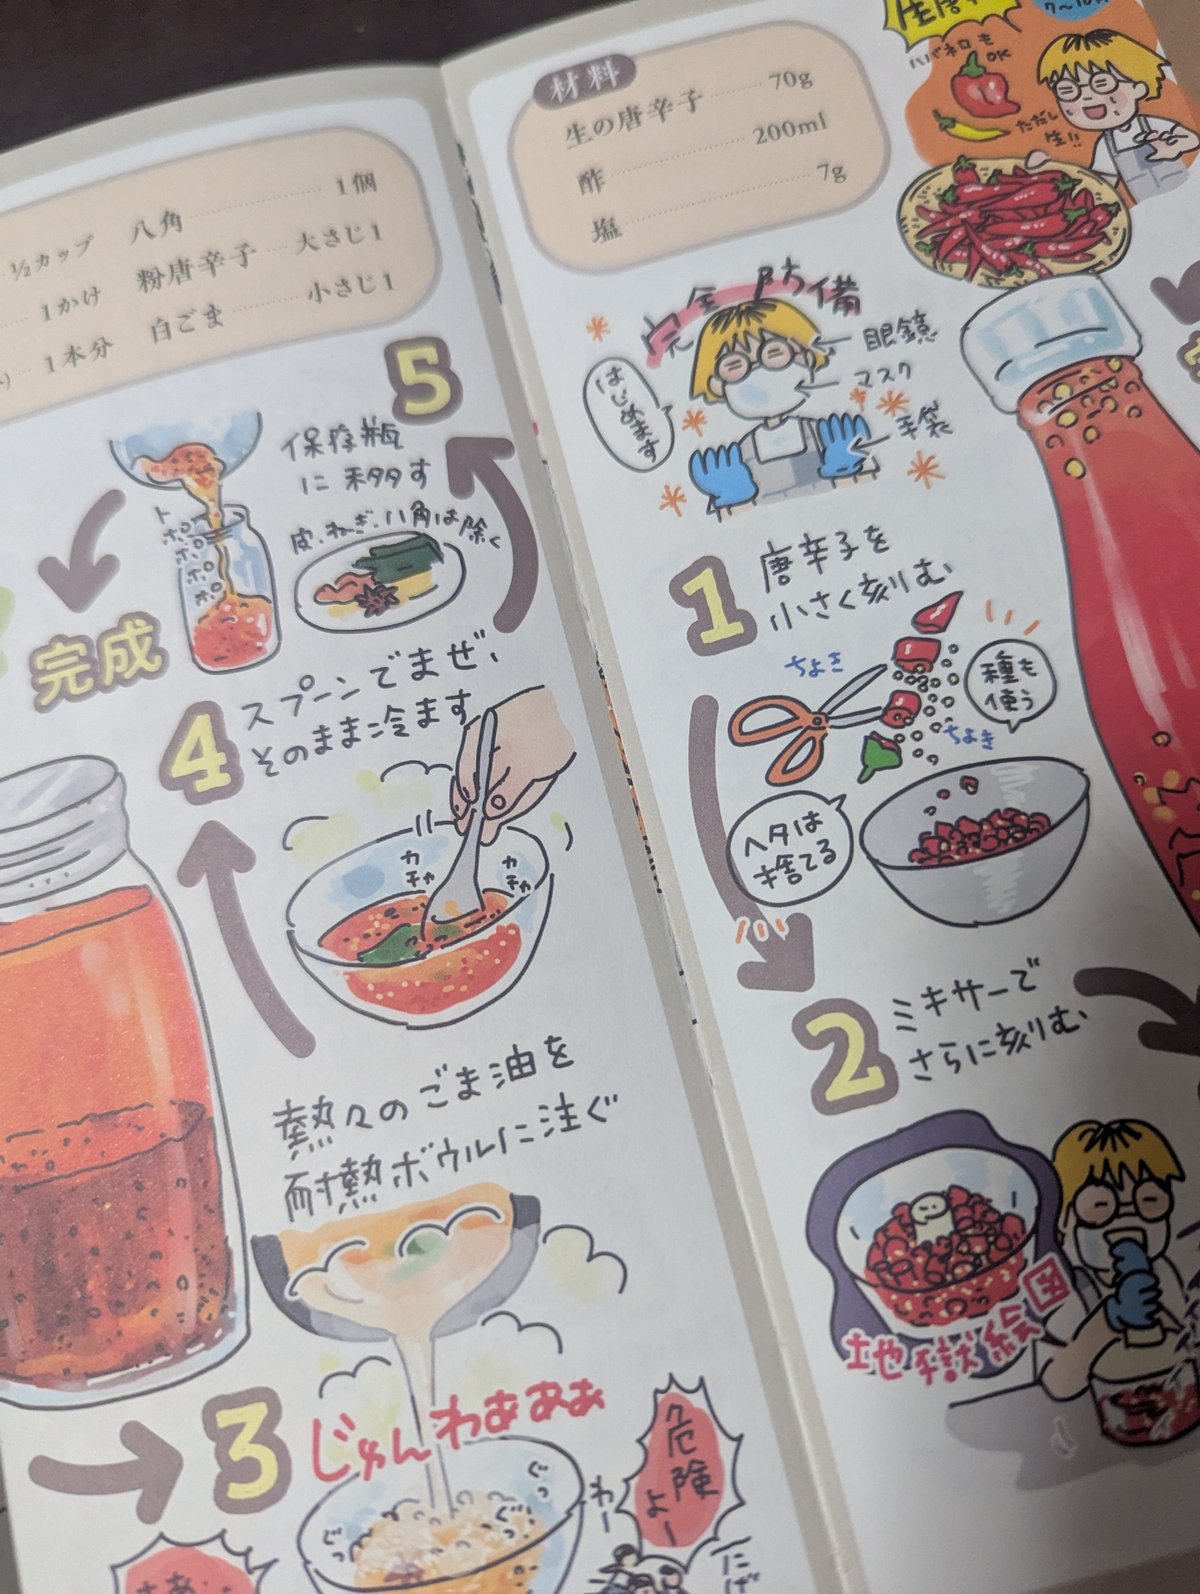 ½カップ
1かけ
1本分
八角 1個
粉唐辛子 大さじ1
白ごま 小さじ1
5
保存瓶
に移す
皮、ねぎ、八角は除く
トポポポポ
完成
4
スプーンでまぜ、
そのまま冷ます
カチャ
カチャ
熱々のごま油を
耐熱ボウルに注ぐ
3
じゅんわぁぁぁ
ぐつ
ぐつ
ぐつ
わー
危険よー
にげ
材料
生の唐辛子 70g
酢 200ml
塩 7g
ハバネロも
OK
ただし
生!!
完全防備
眼鏡
マスク
手袋
はじめます
1
唐辛子を
小さく刻む
ちょき
ちょき
種も
使う
ヘタは
捨てる
2
ミキサーで
さらに刻む
地獄絵図